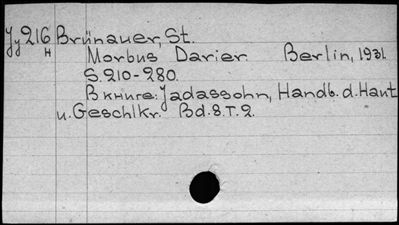 Jy 216 Brünauer, St.
н Morbus Darier. Berlin, 1931.
S. 210-280.
В книге: Jadassohn, Handb. d. Haut
u. Geschlkr. Bd. 8. T. 2.